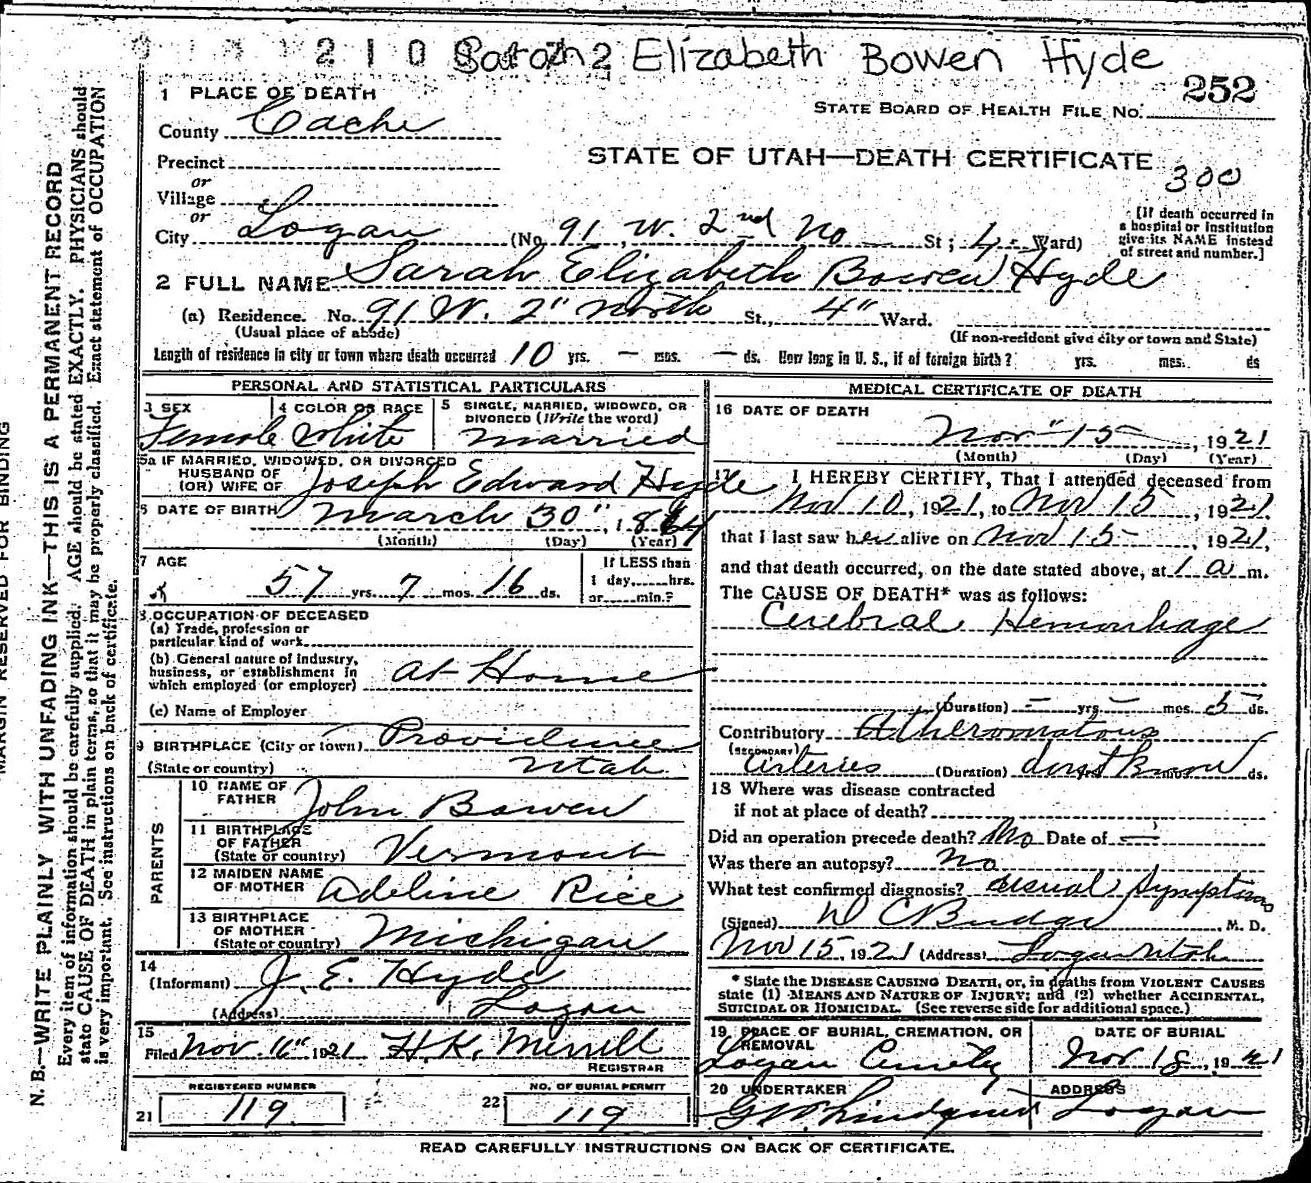 2 1 0 Sarah 2 Elizabeth Bowen Hyde
252
STATE BOARD OF HEALTH FILE NO.
1 PLACE OF DEATH
County Cache
STATE OF UTAH—DEATH CERTIFICATE
300
Precinct
or
Village
or
City Logan (No. 91 W. 2nd No St; 4 Ward)
[If death occurred in
a hospital or institution
give its NAME instead
of street and number.]
2 FULL NAME Sarah Elizabeth Bowen Hyde
(a) Residence. No. 91 W. 2" North St., 4" Ward.
(Usual place of abode) (If non-resident give city or town and State)
Length of residence in city or town where death occurred 10 yrs. — mos. — ds. How long in U. S., if of foreign birth? yrs. mos. ds
PERSONAL AND STATISTICAL PARTICULARS
3 SEX Female
4 COLOR OR RACE White
5 SINGLE, MARRIED, WIDOWED, OR
DIVORCED (Write the word)
Married
5a IF MARRIED, WIDOWED, OR DIVORCED
HUSBAND OF
(OR) WIFE OF Joseph Edward Hyde
6 DATE OF BIRTH March 30", 1864
(Month) (Day) (Year)
7 AGE
57 yrs. 7 mos. 16 ds.
If LESS than
1 day, hrs.
or min.?
8 OCCUPATION OF DECEASED
(a) Trade, profession or
particular kind of work
(b) General nature of industry,
business, or establishment in
which employed (or employer) At Home
(c) Name of Employer
9 BIRTHPLACE (City or town) Providence
(State or country) Utah
PARENTS
10 NAME OF
FATHER John Bowen
11 BIRTHPLACE
OF FATHER
(State or country) Vermont
12 MAIDEN NAME
OF MOTHER Adeline Rice
13 BIRTHPLACE
OF MOTHER
(State or country) Michigan
14
(Informant) J. E. Hyde
(Address) Logan
15
Filed Nov. 16" 1921 H. K. Merrill
REGISTRAR
REGISTERED NUMBER
21 119
NO. OF BURIAL PERMIT
22 119
MEDICAL CERTIFICATE OF DEATH
16 DATE OF DEATH
Nov" 15, 1921
(Month) (Day) (Year)
17 I HEREBY CERTIFY, That I attended deceased from
Nov 10, 1921, to Nov 15, 1921,
that I last saw her alive on Nov 15, 1921,
and that death occurred, on the date stated above, at 1 a m.
The CAUSE OF DEATH* was as follows:
Cerebral Hemorrhage
(Duration) — yrs — mos. 5 ds.
Contributory Atheromatous
(SECONDARY)
arteries (Duration) dont know ds.
18 Where was disease contracted
if not at place of death?
Did an operation precede death? No Date of —
Was there an autopsy? no
What test confirmed diagnosis? usual symptoms
(Signed) D C Budge M. D.
Nov 15, 1921 (Address) Logan Utah
* State the DISEASE CAUSING DEATH, or, in deaths from VIOLENT CAUSES
state (1) MEANS AND NATURE OF INJURY; and (2) whether ACCIDENTAL,
SUICIDAL OR HOMICIDAL. (See reverse side for additional space.)
19 PLACE OF BURIAL, CREMATION, OR
REMOVAL
Logan Cemetery
DATE OF BURIAL
Nov 18, 1921
20 UNDERTAKER
Lindquist
ADDRESS
Logan
READ CAREFULLY INSTRUCTIONS ON BACK OF CERTIFICATE.
MARGIN RESERVED FOR BINDING
N. B.—WRITE PLAINLY WITH UNFADING INK—THIS IS A PERMANENT RECORD
Every item of information should be carefully supplied. AGE should be stated EXACTLY. PHYSICIANS should
state CAUSE OF DEATH in plain terms, so that it may be properly classified. Exact statement of OCCUPATION
is very important. See instructions on back of certificate.